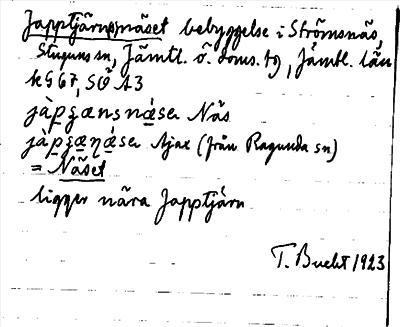 Japptjärn(s)näset bebyggelse i Strömsnäs,
Stuguns sn, Jämtl. ö. doms. tg, Jämtl. län
kG67, SÖ A3
Näs
Ajax (från Ragunda sn)
= Näset
ligger nära Japptjärn
T. Bucht 1923